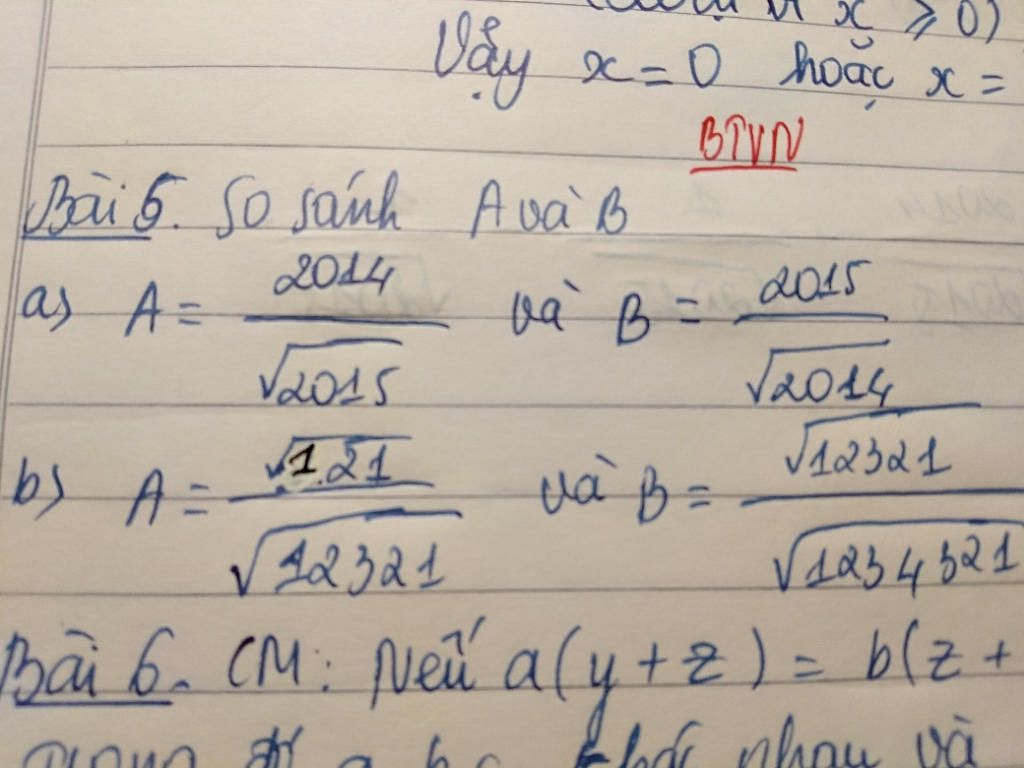 x ≥ 0)
Vậy x = 0 hoặc x =
BTVN
Bài 5. So sánh A và B
a) A = 2014/√2015 và B = 2015/√2014
b) A = √1.21/√12321 và B = √12321/√1234321
Bài 6. CM: Nếu a(y + z) = b(z +
a, b, c khác nhau và